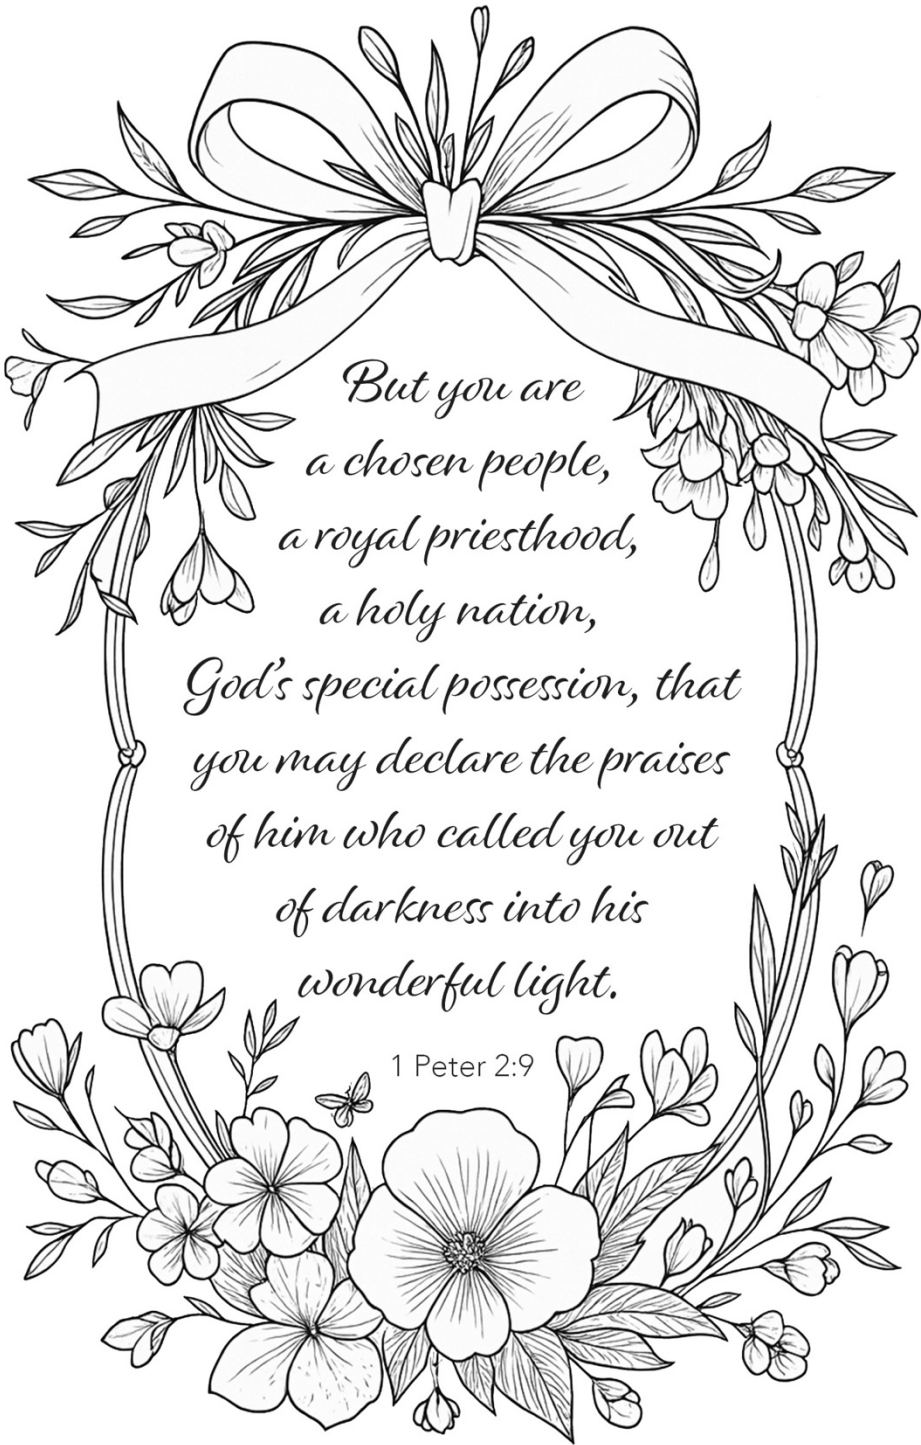 But you are
a chosen people,
a royal priesthood,
a holy nation,
God's special possession, that
you may declare the praises
of him who called you out
of darkness into his
wonderful light.
1 Peter 2:9